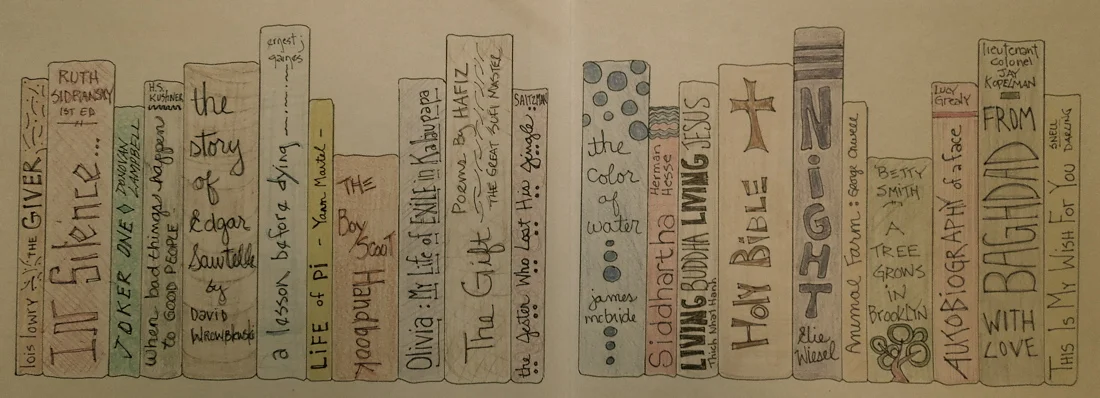 lois lowry THE GIVER
RUTH
SIDRANSKY
1ST ED
IN Silence...
JOKER ONE DONOVAN
CAMPBELL
H.S.
KUSHNER
When bad things happen
to GOOD PEOPLE
the
story
of
Edgar
Sawtelle
by
David
Wroblewski
ernest j
gaines
a lesson before dying
LiFE of Pi - Yann Martel -
THE
Boy
Scout
Handbook
Olivia: My Life of EXILE in Kalaupapa
The Gift Poems By HAFIZ
THE GREAT SUFI MASTER
SALTZMAN
the Jester Who Lost His Jingle
the
Color
of
water
james
mcbride
Siddhartha Herman
Hesse
LIVING BUDDHA LIVING JESUS
Thich Nhat Hanh
HOLY BIBLE
NiGHT
Elie
Wiesel
Animal Farm: George Orwell
BETTY
SMITH
A
TREE
GROWS
IN
BROOKLYN
Lucy
Grealy
AUTOBIOGRAPHY of a face
lieutenant
colonel
JAY
KOPELMAN
FROM
BAGHDAD
WITH
LOVE
THIS Is My Wish For You SNELL
DARLING